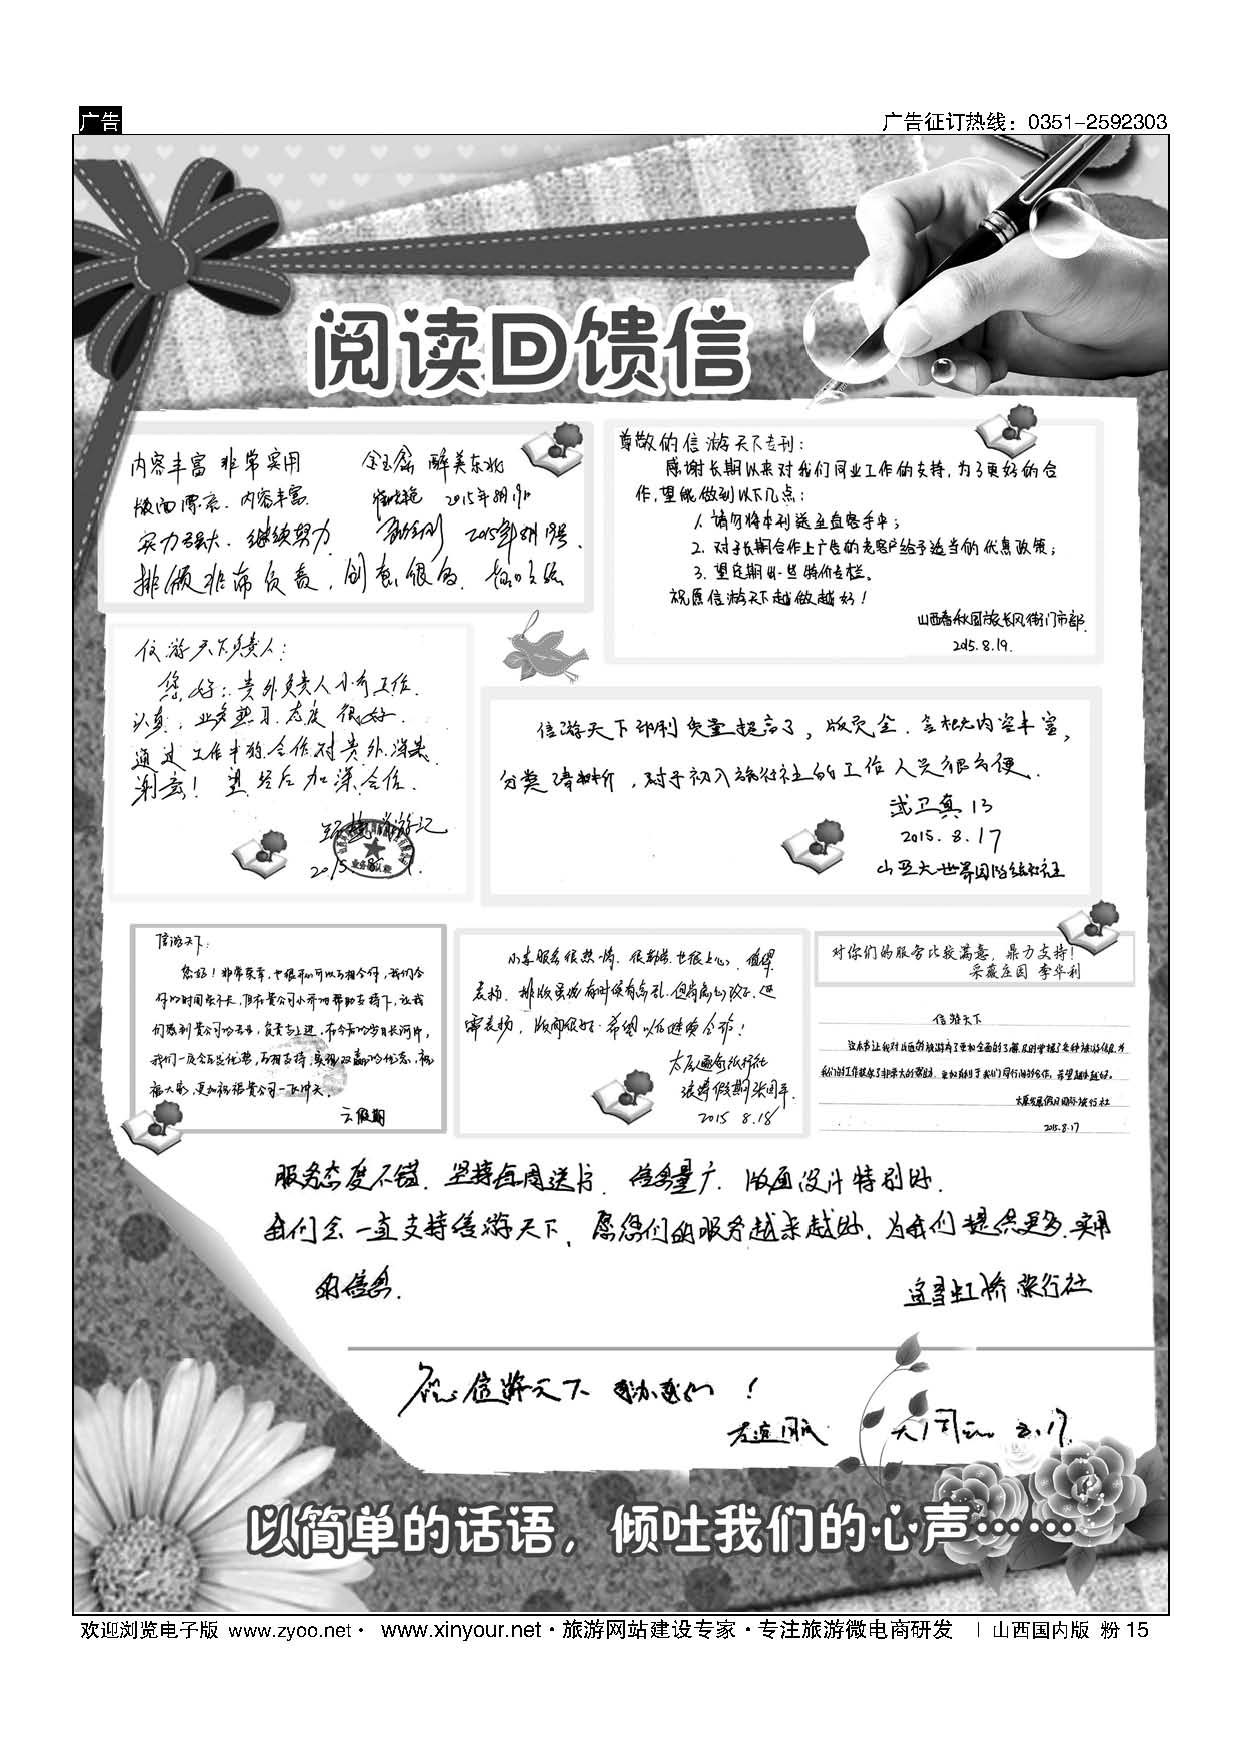 广告
广告征订热线：0351-2592303
阅读回馈信
内容丰富 非常实用
醉美东北
版面漂亮、内容丰富
2015年8月19日
实力强大、继续努力
2015年8月19号
排版非常负责，创意很好
尊敬的信游天下专刊：
感谢长期以来对我们同业工作的支持，为了更好的合
作，望能做到以下几点：
1. 请勿将本刊送至直客手中；
2. 对于长期合作上广告的老客户给予适当的优惠政策；
3. 望定期出一些特价专栏。
祝愿信游天下越做越好！
山西春秋国旅长风街门市部
2015.8.19.
信游天下负责人：
您好：贵处负责人小李工作
认真，业务熟习，态度很好
通过工作中的合作，对贵处深表
谢意！望今后加深合作
信游天下印刷质量提高了，版完全，含概内容丰富，
分类清晰，对于初入旅行社的工作人员很方便．
武卫真 13
2015. 8. 17
山西大世界国际旅行社
信游天下：
您好！非常荣幸，也很开心可以互相合作，我们合
作的时间虽不长，但在贵公司小齐的帮助支持下，让我
们感到贵公司的专业，负责与上进，在今后的岁月长河中，
我们一定会互比优势，互相支持，实现双赢的优态，祝
福大家，更加祝福贵公司一飞冲天．
云假期
小李服务很热情，很勤劳，也很上心，值得
表扬，排版虽然有时候有点乱，但有耐心改好，还
需表扬，版面很好．希望以后继续合作！
浪漫假期 张国平
2015 8.18
对你们的服务比较满意，鼎力支持！
采薇庄园 李华利
信游天下
这本书让我对山西的旅游有了更加全面的了解，及时掌握了各种旅游信息，为
我们的工作提供了非常大的帮助，更加有利于我们同行间的合作，希望越来越好。
2015.8.17
服务态度不错．坚持每周送书．信息量广．版面设计特别好．
我们会一直支持信游天下，愿您们的服务越来越好．为我们提供更多．实用
的信息．
旅行社
信游天下
8.17.
以简单的话语，倾吐我们的心声……
欢迎浏览电子版 www.zyoo.net· www.xinyour.net·旅游网站建设专家·专注旅游微电商研发 | 山西国内版 粉 15